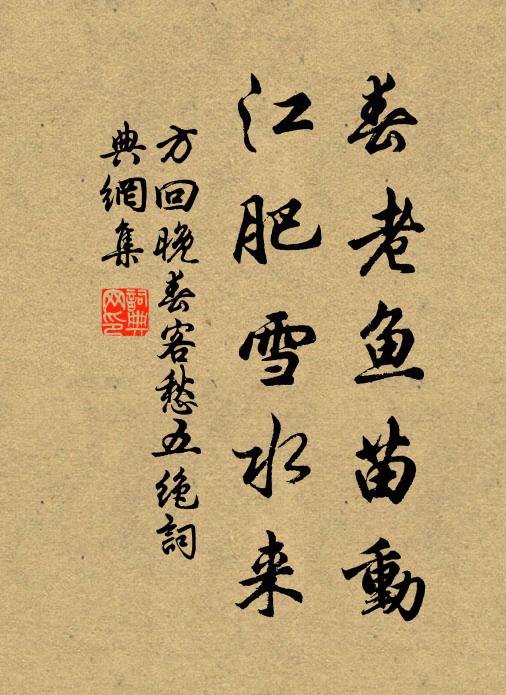 春老鱼苗動
江肥雪水来
方回晚春客愁五绝詞
典網集
詞典
网印